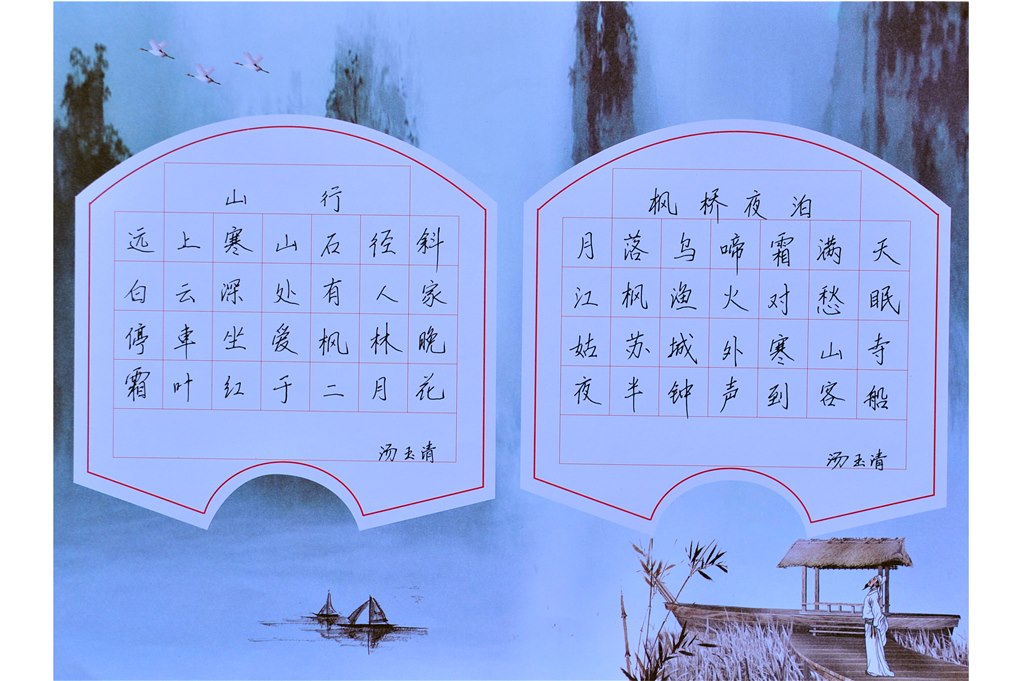 山行
远上寒山石径斜
白云深处有人家
停車坐爱枫林晚
霜叶红于二月花
汤玉清
枫桥夜泊
月落乌啼霜满天
江枫渔火对愁眠
姑苏城外寒山寺
夜半钟声到客船
汤玉清